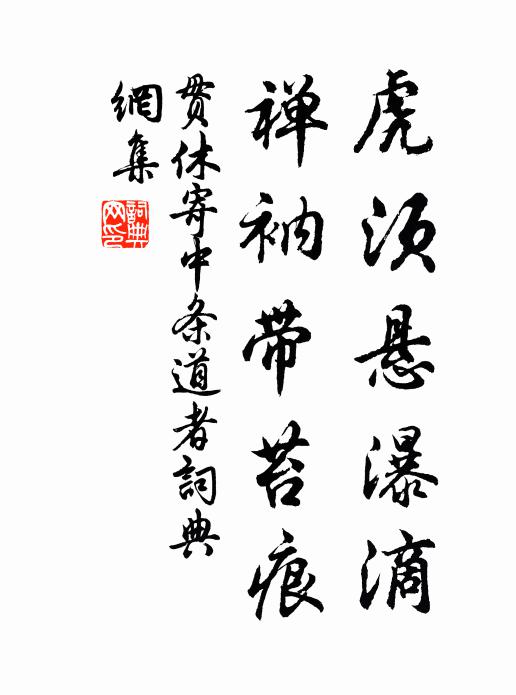 虎须悬瀑滴
禅衲带苔痕
贯休寄中条道者詞典
網集
詞典
网印